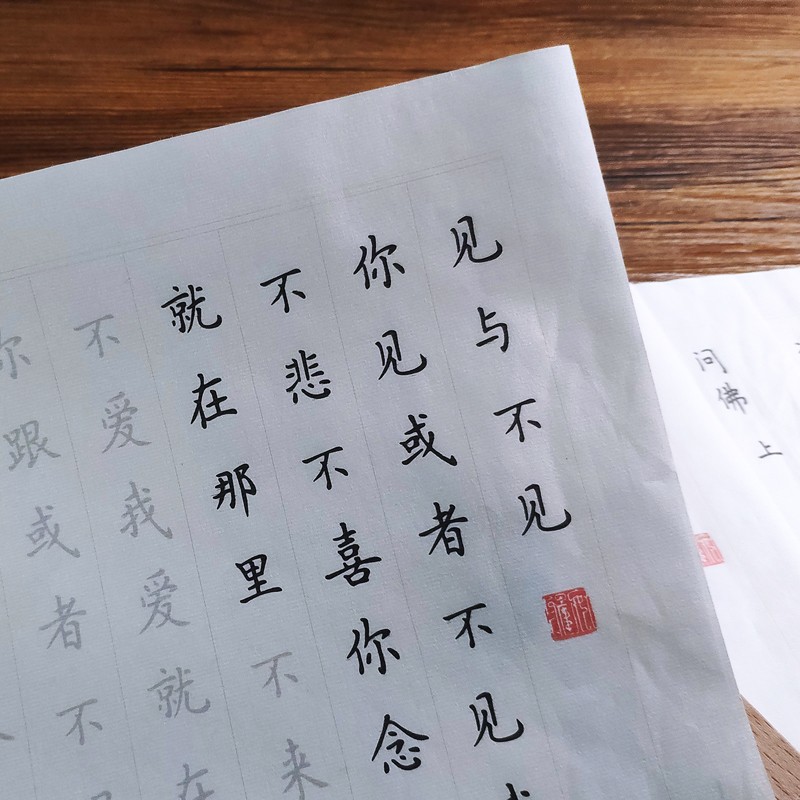 见与不见
你见或者不见
不悲不喜你念
就在那里不来
不爱我爱就在
你跟或者不
问佛
上